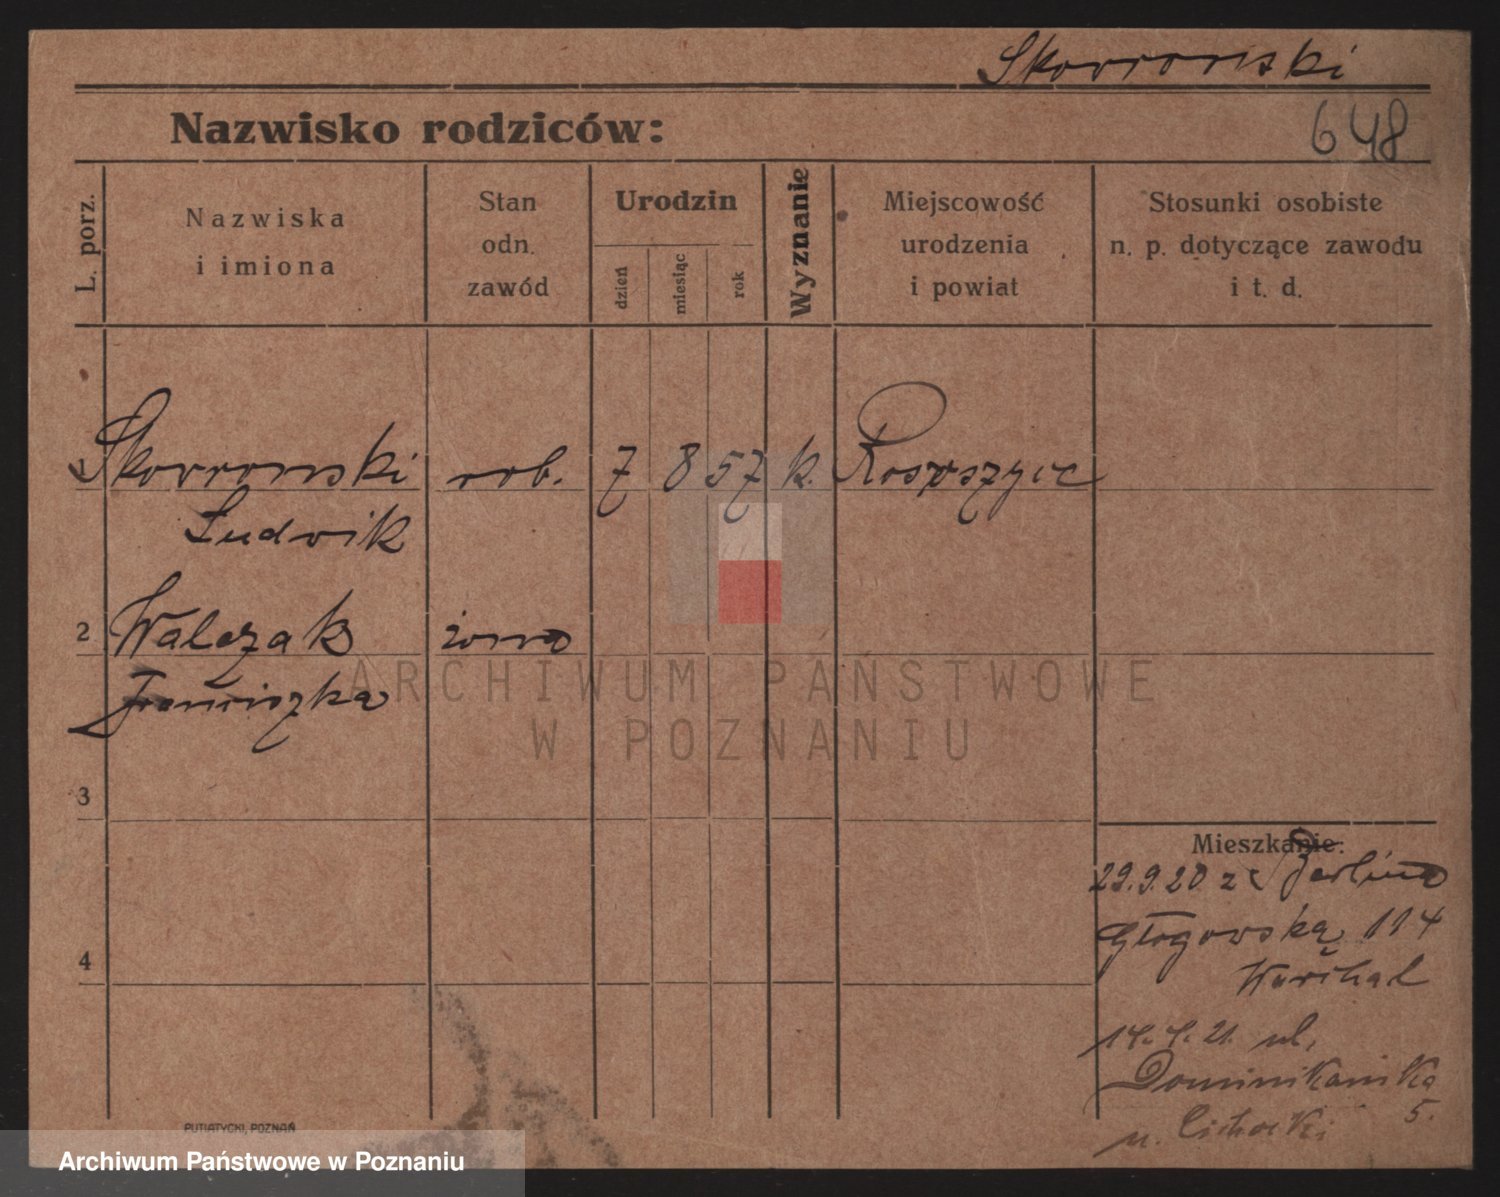 Skowroński
Nazwisko rodziców:
648
L. porz.
Nazwiska
i imiona
Stan
odn.
zawód
Urodzin
dzień
miesiąc
rok
Wyznanie
Miejscowość
urodzenia
i powiat
Stosunki osobiste
n. p. dotyczące zawodu
i t. d.
1 Skowronski rob. 7 8 57 k.
Ludwik
2 Walczak żona
Franciszka
3
4
Mieszkanie:
29.9.20 z Berlina
Głogowska 114
14.4.21. ul.
Dominikańska
5.
u. Cichocki
PUTIATYCKI, POZNAŃ
ARCHIWUM PAŃSTWOWE
W POZNANIU
Archiwum Państwowe w Poznaniu